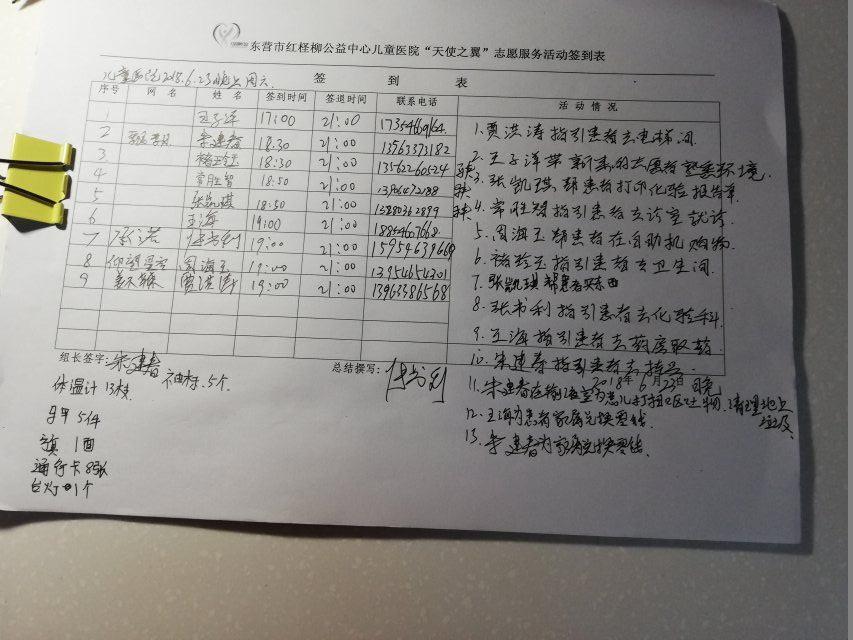 东营市红柽柳公益中心儿童医院“天使之翼”志愿服务活动签到表
儿童医院2018.6.23晚上 周六
签 到 表
序号 网 名 姓 名 签到时间 签退时间 联系电话 活 动 情 况
1 王子洋 17:00 21:00
2 宋建春 18:30 21:00 13563373182
3 18:30 21:00 13562260524
4 常胜智 18:50 21:00
5 张凯琪 18:50 21:00
6 王海 19:00 21:00 18854607668
7 承诺 19:00 21:00
8 仰望星空 周海玉 19:00 21:00 13954654201
9 贾洪涛 19:00 21:00 13963386568
1.贾洪涛指引患者去电梯间
2.王子洋带新来的志愿者熟悉环境.
3.张凯琪帮患者打印化验报告单
4.常胜智指引患者去诊室就诊.
5.周海玉帮患者在自助机购物
6.指引患者去卫生间.
7.张凯琪帮患者买东西
8.张书利指引患者去化验科.
9.王海指引患者去药房取药.
10.宋建春指引患者去
2018年6月23日晚
11.宋建春在输液室为患儿打扫呕吐物.清理地上垃圾
12.王海为患者家属兑换零钱.
13.宋建春为家属兑换零钱.
组长签字:宋建春
总结撰写:
体温计13支 袖标5个.
马甲5件
旗1面
通行卡8张
台灯1个